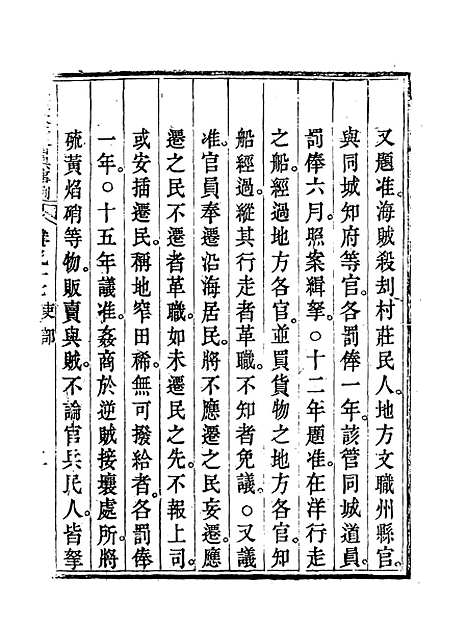 又題准海賊殺刦村莊民人地方文職州縣官。
與同城知府等官。各罰俸一年。該管同城道員。
罰俸六月。照案緝拏。○十二年題准。在洋行走
之船。經過地方各官。並買貨物之地方各官。知
船經過。縱其行走者革職。不知者免議。○又議
准。官員奉遷沿海居民。將不應遷之民妄遷。應
遷之民不遷者革職。如未遷民之先。不報上司。
或安插遷民。稱地窄田稀。無可撥給者。各罰俸
一年。○十五年議准。姦商於逆賊接壤處所。將
硫黃焰硝等物。販賣與賊。不論官兵民人。皆拏
吏部